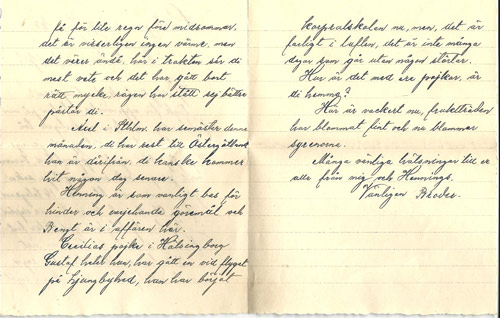 få för lite regn före midsommar,
det är visserligen ingen värme, men
det växer ändå, här i trakten sår di
mest vete och det har gått bort
rätt mycke, rågen har stått sej bättre
påstår di.
Axel i Sthlm. har semester denna
månaden, de har rest till Östergötland
han är därifrån, de kanske kommer
hit någon dag senare.
Henning är som vanligt bas för
hinder och varjehanda göromål och
Bengt är i affären här.
Cecilias pojke i Hälsingborg
Gustaf heter han, har gått in vid flyget
på Ljungbyhed, han har börjat
korpralskolen nu, men, det är
farligt i luften, det är inte många
dagar som går utan någon störtar.
Hur är det med era pojkar, är
di hemma?
Här är vackert nu, fruktträden
har blommat fint och nu blommar
syrenerna.
Många vänliga hälsningar till er
alla från mig och Hennings.
Vänligen